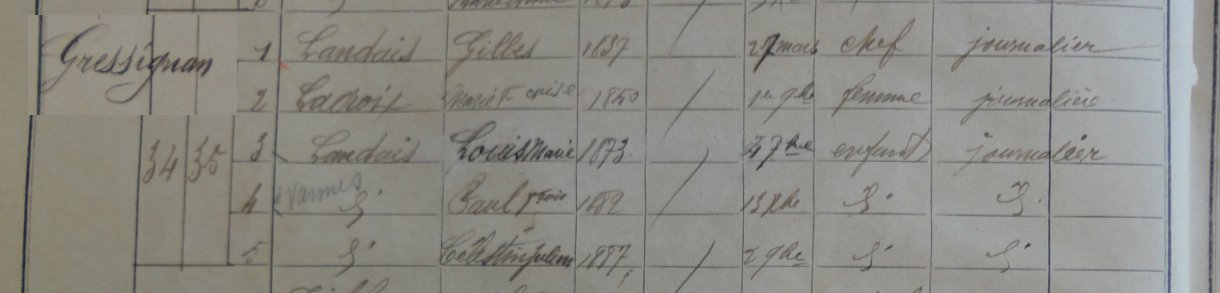 Gressignan 1 Landais Gilles 1837 / 27 mars chef journalier
2 Lacroix Marie Fcoise 1850 / 1er 9bre femme journalière
34 35 3 Landais Louis Marie 1873 / 7bre enfant journalier
4 Vannes d° Paul Frois 1882 / 13 Xbre d° d°
5 d° Célestin Julien 1887 / 2 9bre d° d°